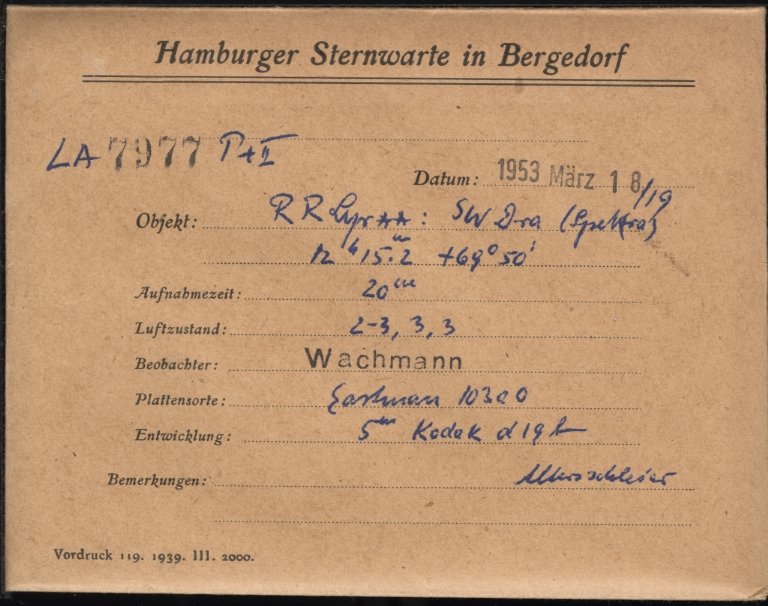 Hamburger Sternwarte in Bergedorf
LA 7977 P+I
Datum: 1953 März 18/19
Objekt: RR Lyr **: SW Dra (Spektra)
12ʰ 15.ᵐ2 +69° 50'
Aufnahmezeit: 20ᵐ
Luftzustand: 2-3, 3, 3
Beobachter: Wachmann
Plattensorte: Eastman 103aO
Entwicklung: 5ᵐ Kodak d19b
Bemerkungen: Altersschleier
Vordruck 119. 1939. III. 2000.